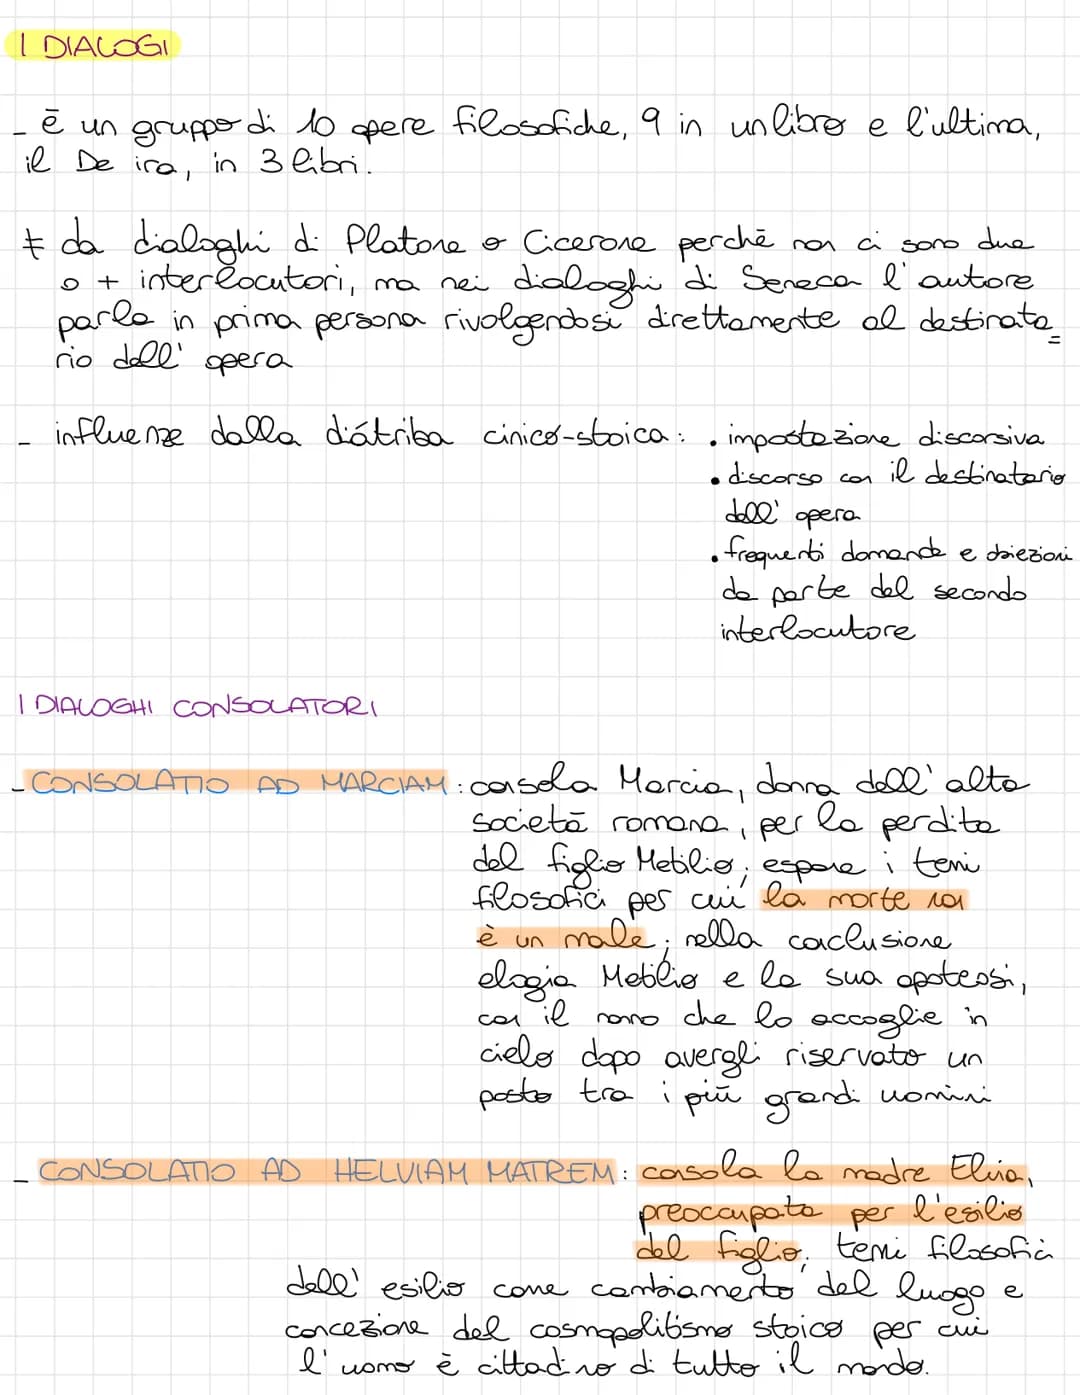 I DIALOGI
- è un gruppo di 10 opere filosofiche, 9 in un libro e l'ultima,
il De ira, in 3 libri.
≠ da dialoghi di Platone o Cicerone perchè non ci sono due
o + interlocutori, ma nei dialoghi di Seneca l'autore
parla in prima persona rivolgendosi direttamente al destinata=
rio dell'opera
- influenze dalla diátriba cinico-stoica: • impostazione discorsiva
• discorso con il destinatario
dell'opera
• frequenti domande e obiezioni
da parte del secondo
interlocutore
I DIALOGHI CONSOLATORI
- CONSOLATIO AD MARCIAM: consola Marcia, donna dell'alta
società romana, per la perdita
del figlio Metilio; espone i temi
filosofici per cui la morte non
è un male; nella conclusione
elogia Metilio e la sua apoteosi,
con il nonno che lo accoglie in
cielo dopo avergli riservato un
posto tra i più grandi uomini
- CONSOLATIO AD HELVIAM MATREM: consola la madre Elvia,
preoccupata per l'esilio
del figlio; temi filosofici
dell'esilio come cambiamento del luogo e
concezione del cosmopolitismo stoico per cui
l'uomo è cittadino di tutto il mondo.